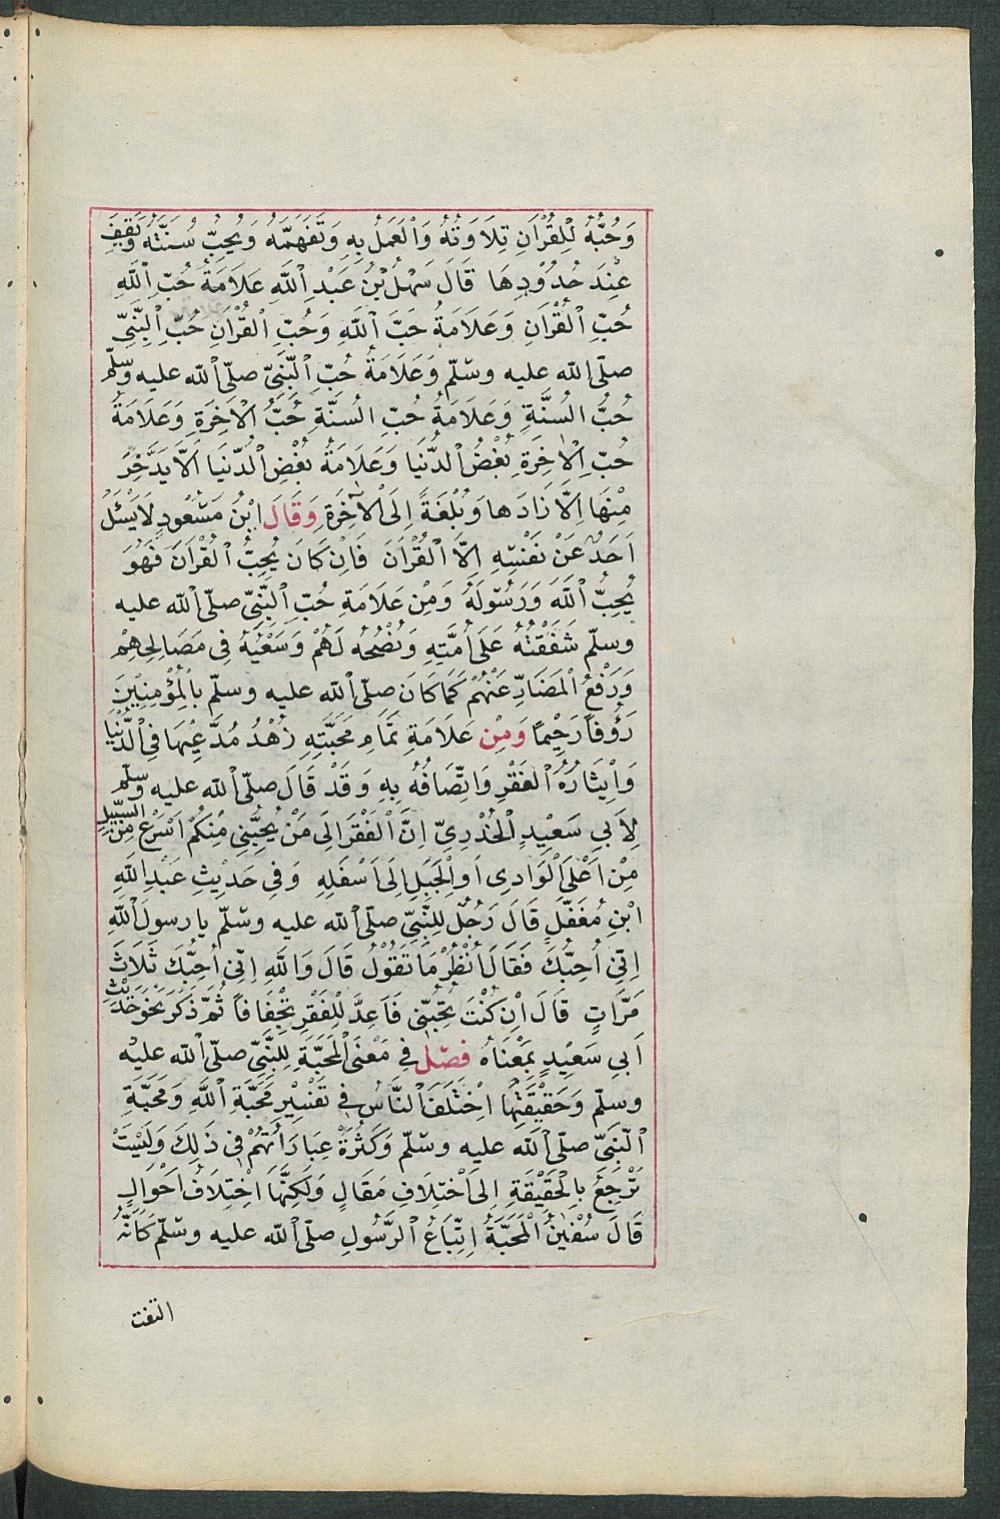 وَحُبُّهُ لِلْقُرْاٰنِ تِلَاوَتُهُ وَالْعَمَلُ بِهِ وَتَفَهُّمُهُ وَيُحِبُّ سُنَّتَهُ وَيَقِفُ
عِنْدَ حُدُودِهَا قَالَ سَهْلُ بْنُ عَبْدِ اللّٰهِ عَلَامَةُ حُبِّ اللّٰهِ
حُبُّ الْقُرْاٰنِ وَعَلَامَةُ حُبِّ اللّٰهِ وَحُبِّ الْقُرْاٰنِ حُبُّ النَّبِيِّ
صلّى الله عليه وسلّم وَعَلَامَةُ حُبِّ النَّبِيِّ صلّى الله عليه وسلّم
حُبُّ السُّنَّةِ وَعَلَامَةُ حُبِّ السُّنَّةِ حُبُّ الْاٰخِرَةِ وَعَلَامَةُ
حُبِّ الْاٰخِرَةِ بُغْضُ الدُّنْيَا وَعَلَامَةُ بُغْضِ الدُّنْيَا اَلَّا يَدَّخِرَ
مِنْهَا اِلَّا زَادَهَا وَبُلْغَةً اِلَى الْاٰخِرَةِ وَقَالَ ابْنُ مَسْعُودٍ لَا يَسْئَلُ
اَحَدٌ عَنْ نَفْسِهِ اِلَّا الْقُرْاٰنَ فَاِنْ كَانَ يُحِبُّ الْقُرْاٰنَ فَهُوَ
يُحِبُّ اللّٰهَ وَرَسُولَهُ وَمِنْ عَلَامَةِ حُبِّ النَّبِيِّ صلّى الله عليه
وسلّم شَفَقَتُهُ عَلَى اُمَّتِهِ وَنُصْحُهُ لَهُمْ وَسَعْيُهُ فِي مَصَالِحِهِمْ
وَرَفْعُ الْمَضَارِّ عَنْهُمْ كَمَا كَانَ صلّى الله عليه وسلّم بِالْمُؤْمِنِينَ
رَؤُفًا رَحِيمًا وَمِنْ عَلَامَةِ تَمَامِ مَحَبَّتِهِ زُهْدُ مُدَّعِيهَا فِي الدُّنْيَا
وَاِيثَارُهُ الْفَقْرَ وَاتِّصَافُهُ بِهِ وَقَدْ قَالَ صلّى الله عليه وسلّم
لِاَبِي سَعِيدٍ الْخُدْرِيِّ اِنَّ الْفَقْرَ اِلَى مَنْ يُحِبُّنِي مِنْكُمْ اَسْرَعُ مِنَ السَّيْلِ
مِنْ اَعْلَى الْوَادِي اَوِ الْجَبَلِ اِلَى اَسْفَلِهِ وَفِي حَدِيثِ عَبْدِ اللّٰهِ
ابْنِ مُغَفَّلٍ قَالَ رَجُلٌ لِلنَّبِيِّ صلّى الله عليه وسلّم يا رسولَ اللّٰهِ
اِنِّي اُحِبُّكَ فَقَالَ انْظُرْ مَا تَقُولُ قَالَ وَاللّٰهِ اِنِّي اُحِبُّكَ ثَلَاثَ
مَرَّاتٍ قَالَ اِنْ كُنْتَ تُحِبُّنِي فَاَعِدَّ لِلْفَقْرِ تِجْفَافًا ثُمَّ ذَكَرَ نَحْوَ حَدِيثِ
اَبِي سَعِيدٍ بِمَعْنَاهُ فَصْلٌ فِي مَعْنَى الْمَحَبَّةِ لِلنَّبِيِّ صلّى الله عليه
وسلّم وَحَقِيقَتِهَا اِخْتَلَفَ النَّاسُ فِي تَفْسِيرِ مَحَبَّةِ اللّٰهِ وَمَحَبَّةِ
النَّبِيِّ صلّى الله عليه وسلّم وَكَثُرَةْ عِبَارَاتُهُمْ فِي ذٰلِكَ وَلَيْسَتْ
تَرْجِعُ بِالْحَقِيقَةِ اِلَى اخْتِلَافِ مَقَالٍ وَلٰكِنَّهَا اخْتِلَافُ اَحْوَالٍ
قَالَ سُفْيٰنُ الْمَحَبَّةُ اِتِّبَاعُ الرَّسُولِ صلّى الله عليه وسلّم كَاَنَّهُ
التفت